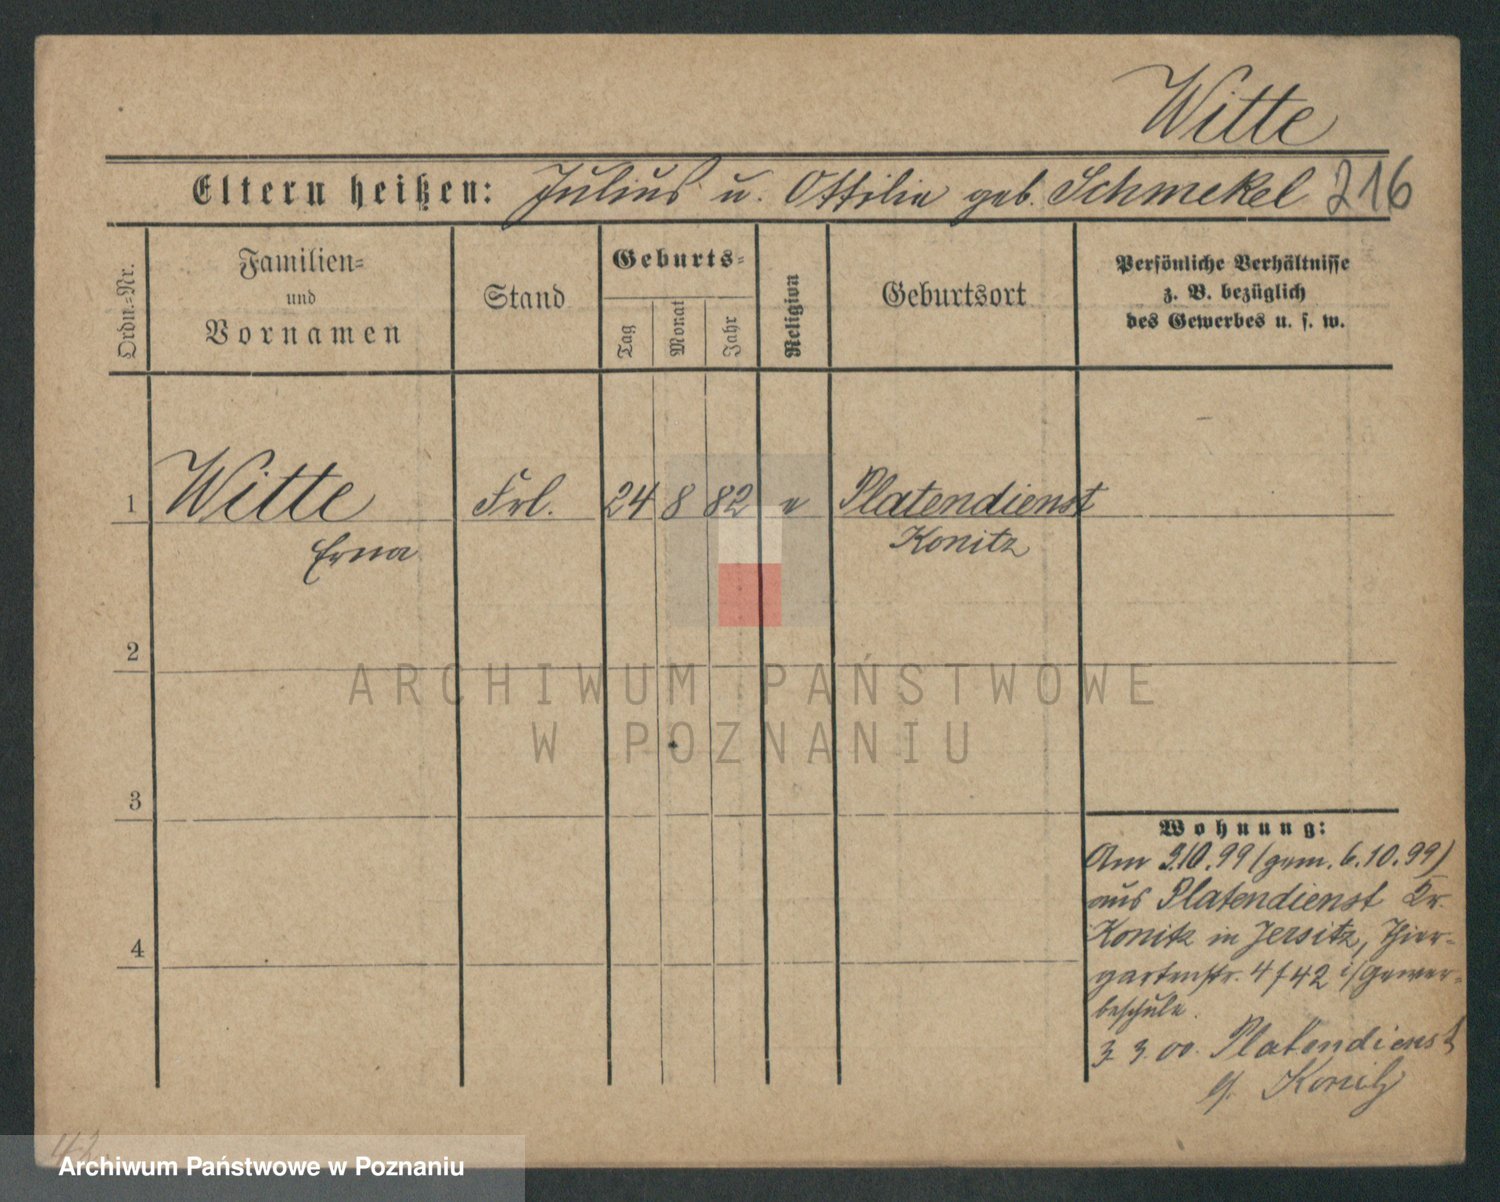 Witte
Eltern heißen: Julius u. Ottilie geb. Schmekel 216
Ordn.=Nr.
Familien=
und
Vornamen
Stand
Geburts=
Tag
Monat
Jahr
Religion
Geburtsort
Persönliche Verhältnisse
z. B. bezüglich
des Gewerbes u. s. w.
1 Witte Frl. 24 8 82 e Platendienst
Erna Konitz
2
ARCHIWUM PAŃSTWOWE
W POZNANIU
3
Wohnung:
Am 3.10.99 (gem. 6.10.99)
aus Platendienst Kr.
Konitz in Jersitz, Thier-
gartenstr. 4 f 42 i/Gewer-
beschule.
3. 3. 00. Platendienst
b. Konitz
4
Archiwum Państwowe w Poznaniu